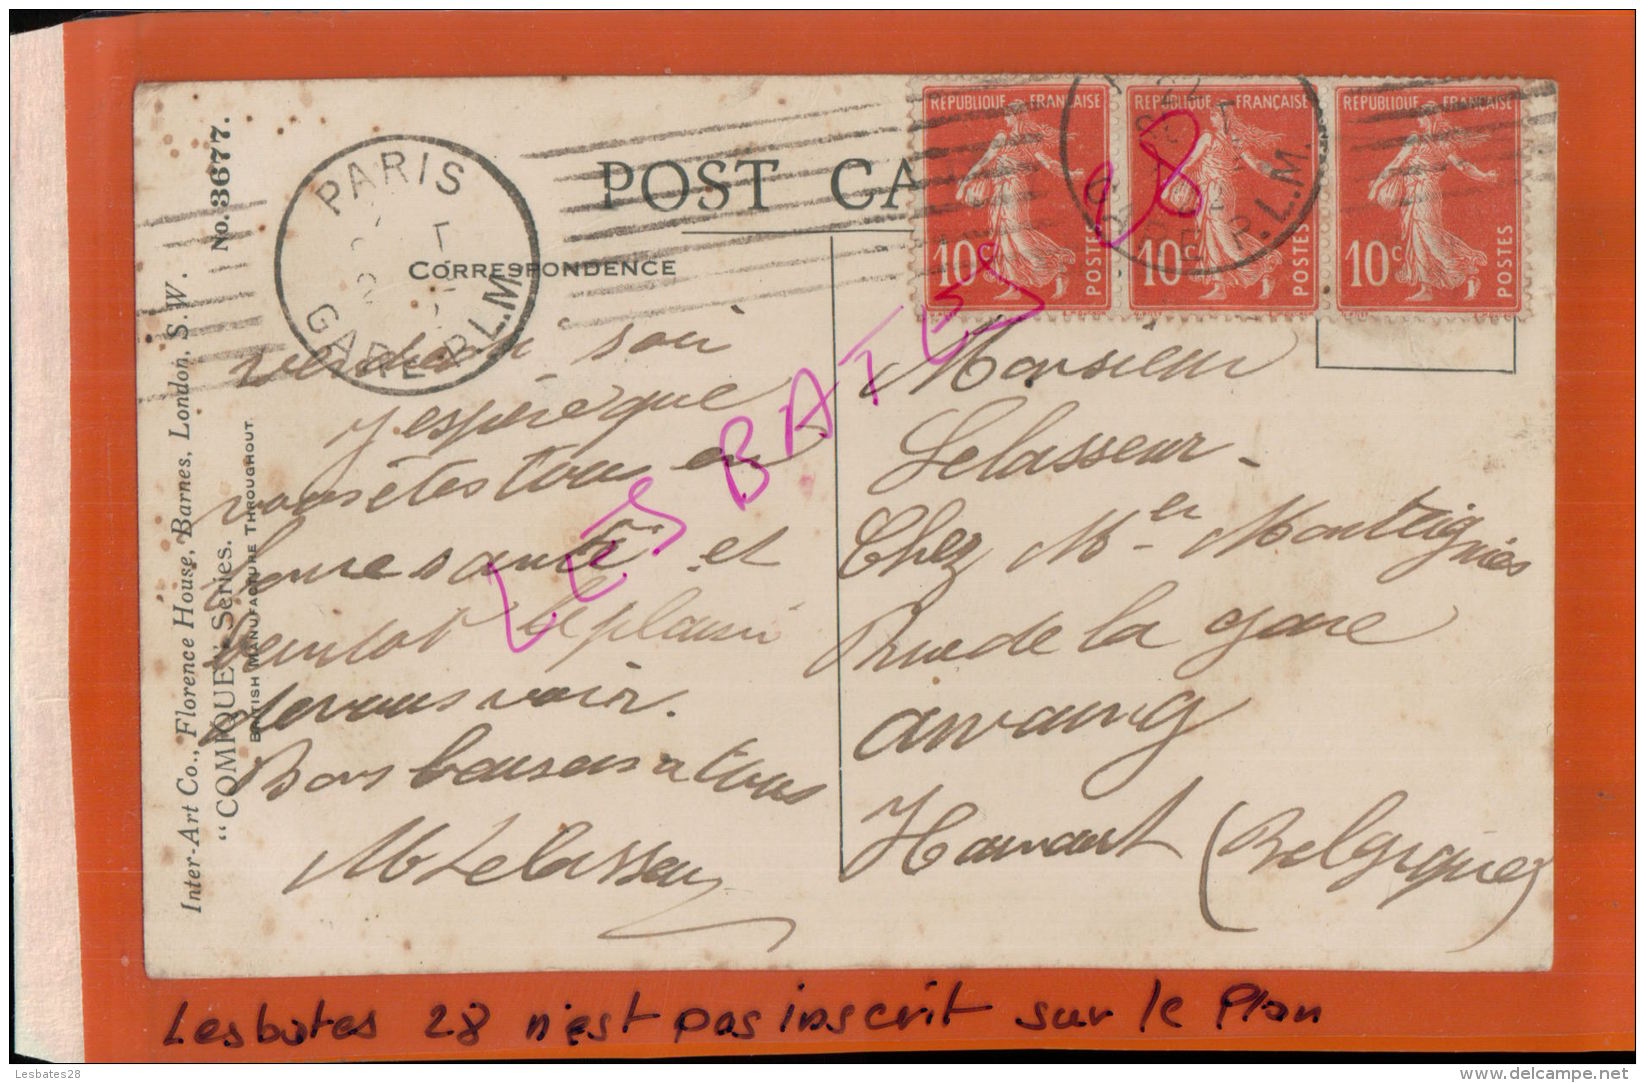 No. 3677.
Inter-Art Co., Florence House, Barnes, London, S.W.
"COMIQUE" Series.
BRITISH MANUFACTURE THROUGHOUT.
POST CA
CORRESPONDENCE
PARIS
GARE P.L.M.
REPUBLIQUE FRANÇAISE
10c
POSTES
REPUBLIQUE FRANÇAISE
10c
POSTES
REPUBLIQUE FRANÇAISE
10c
POSTES
GARE P.L.M.
soir
j espère que
vous êtes tous en
bonne santé et
bientot le plaisir
de vous voir.
Bons baisers a tous
M Lelasseur
Monsieur
Lelasseur
Chez Mer Montignies
Rue de la gare
Hainaut (Belgique)
LES BATES 28
Lesbates 28 n'est pas inscrit sur le Plan
Lesbates28
delcampe.net